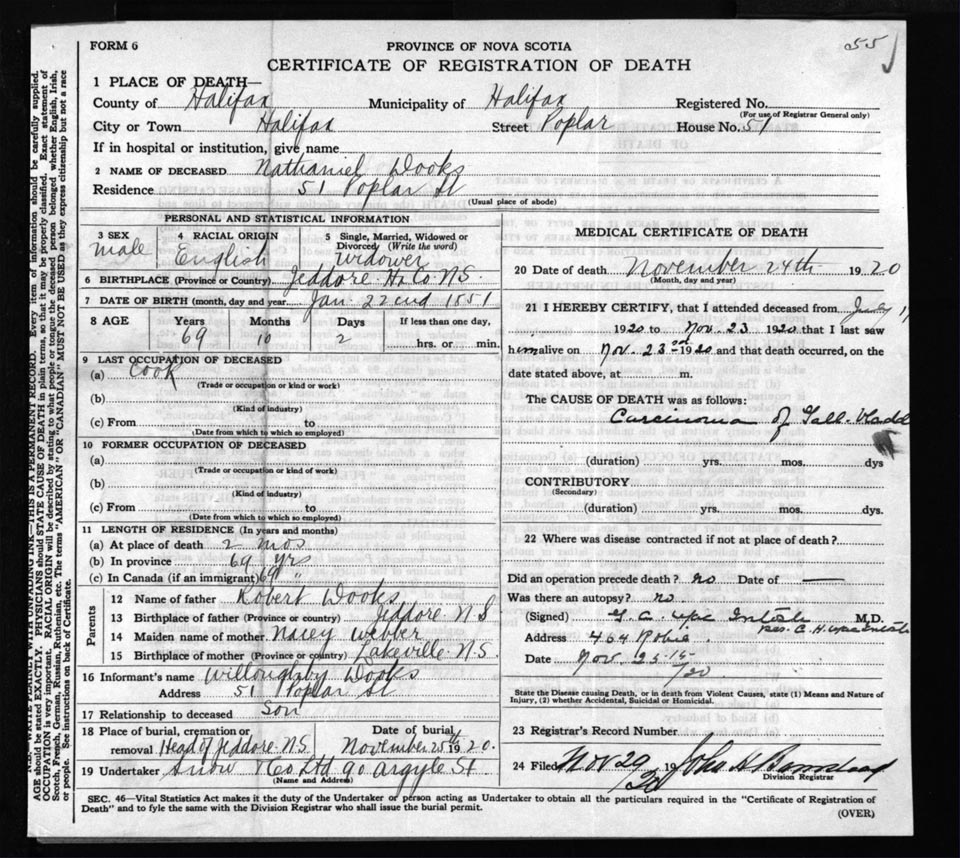 FORM 6
PROVINCE OF NOVA SCOTIA
55
CERTIFICATE OF REGISTRATION OF DEATH
1 PLACE OF DEATH—
County of Halifax Municipality of Halifax Registered No.
(For use of Registrar General only)
City or Town Halifax Street Poplar House No. 51
If in hospital or institution, give name
2 NAME OF DECEASED Nathaniel Dooks
Residence 51 Poplar St
(Usual place of abode)
PERSONAL AND STATISTICAL INFORMATION
3 SEX 4 RACIAL ORIGIN 5 Single, Married, Widowed or Divorced (Write the word)
male English Widower
6 BIRTHPLACE (Province or Country) Jeddore Hx Co N.S.
7 DATE OF BIRTH (month, day and year) Jan. 22nd 1851
8 AGE Years Months Days If less than one day,
69 10 2 hrs. or min.
9 LAST OCCUPATION OF DECEASED
(a) Cook
(Trade or occupation or kind or work)
(b)
(Kind of industry)
(c) From to
(Date from which to which so employed)
10 FORMER OCCUPATION OF DECEASED
(a)
(Trade or occupation or kind of work)
(b)
(Kind of industry)
(c) From to
(Date from which to which so employed)
11 LENGTH OF RESIDENCE (In years and months)
(a) At place of death 2 mos
(b) In province 69 yrs
(c) In Canada (if an immigrant) 69 "
Parents
12 Name of father Robert Dooks
13 Birthplace of father (Province or country) Jeddore N S
14 Maiden name of mother Nacey Webber
15 Birthplace of mother (Province or country) Lakeville N.S.
16 Informant's name Willoughby Dooks
Address 51 Poplar St
17 Relationship to deceased Son
18 Place of burial, cremation or removal Head of Jeddore N.S. Date of burial November 25th 1920.
19 Undertaker Snow & Co Ltd 90 Argyle St
(Name and Address)
MEDICAL CERTIFICATE OF DEATH
20 Date of death November 24th 1920
(Month, day and year)
21 I HEREBY CERTIFY, that I attended deceased from July
1920 to Nov. 23 1920 that I last saw
him alive on Nov. 23rd 1920 and that death occurred, on the
date stated above, at m.
The CAUSE OF DEATH was as follows:
Carcinoma of Gall-bladd
(duration) yrs. mos. dys
CONTRIBUTORY
(Secondary)
(duration) yrs. mos. dys.
22 Where was disease contracted if not at place of death?
Did an operation precede death? no Date of —
Was there an autopsy? no
(Signed) M.D.
Address 464 Robie
Date Nov. 25
State the Disease causing Death, or in death from Violent Causes, state (1) Means and Nature of Injury, (2) whether Accidental, Suicidal or Homicidal.
23 Registrar's Record Number
24 Filed Nov 29 19 20
Division Registrar
SEC. 46—Vital Statistics Act makes it the duty of the Undertaker or person acting as Undertaker to obtain all the particulars required in the "Certificate of Registration of
Death" and to fyle the same with the Division Registrar who shall issue the burial permit.
(OVER)
N.B. WRITE PLAINLY, WITH UNFADING INK—THIS IS A PERMANENT RECORD. Every item of information should be carefully supplied.
AGE should be stated EXACTLY. PHYSICIANS should STATE CAUSE OF DEATH in plain terms, so that it may be properly classified. Exact statement of
OCCUPATION is very important. RACIAL ORIGIN will be described by stating to what people or tongue the deceased person belonged whether English, Irish,
Scotch, French, German, Russian, Ruthenian, etc. The terms "AMERICAN" OR "CANADIAN" MUST NOT BE USED as they express citizenship but not a race
or people. See instructions on back of Certificate.